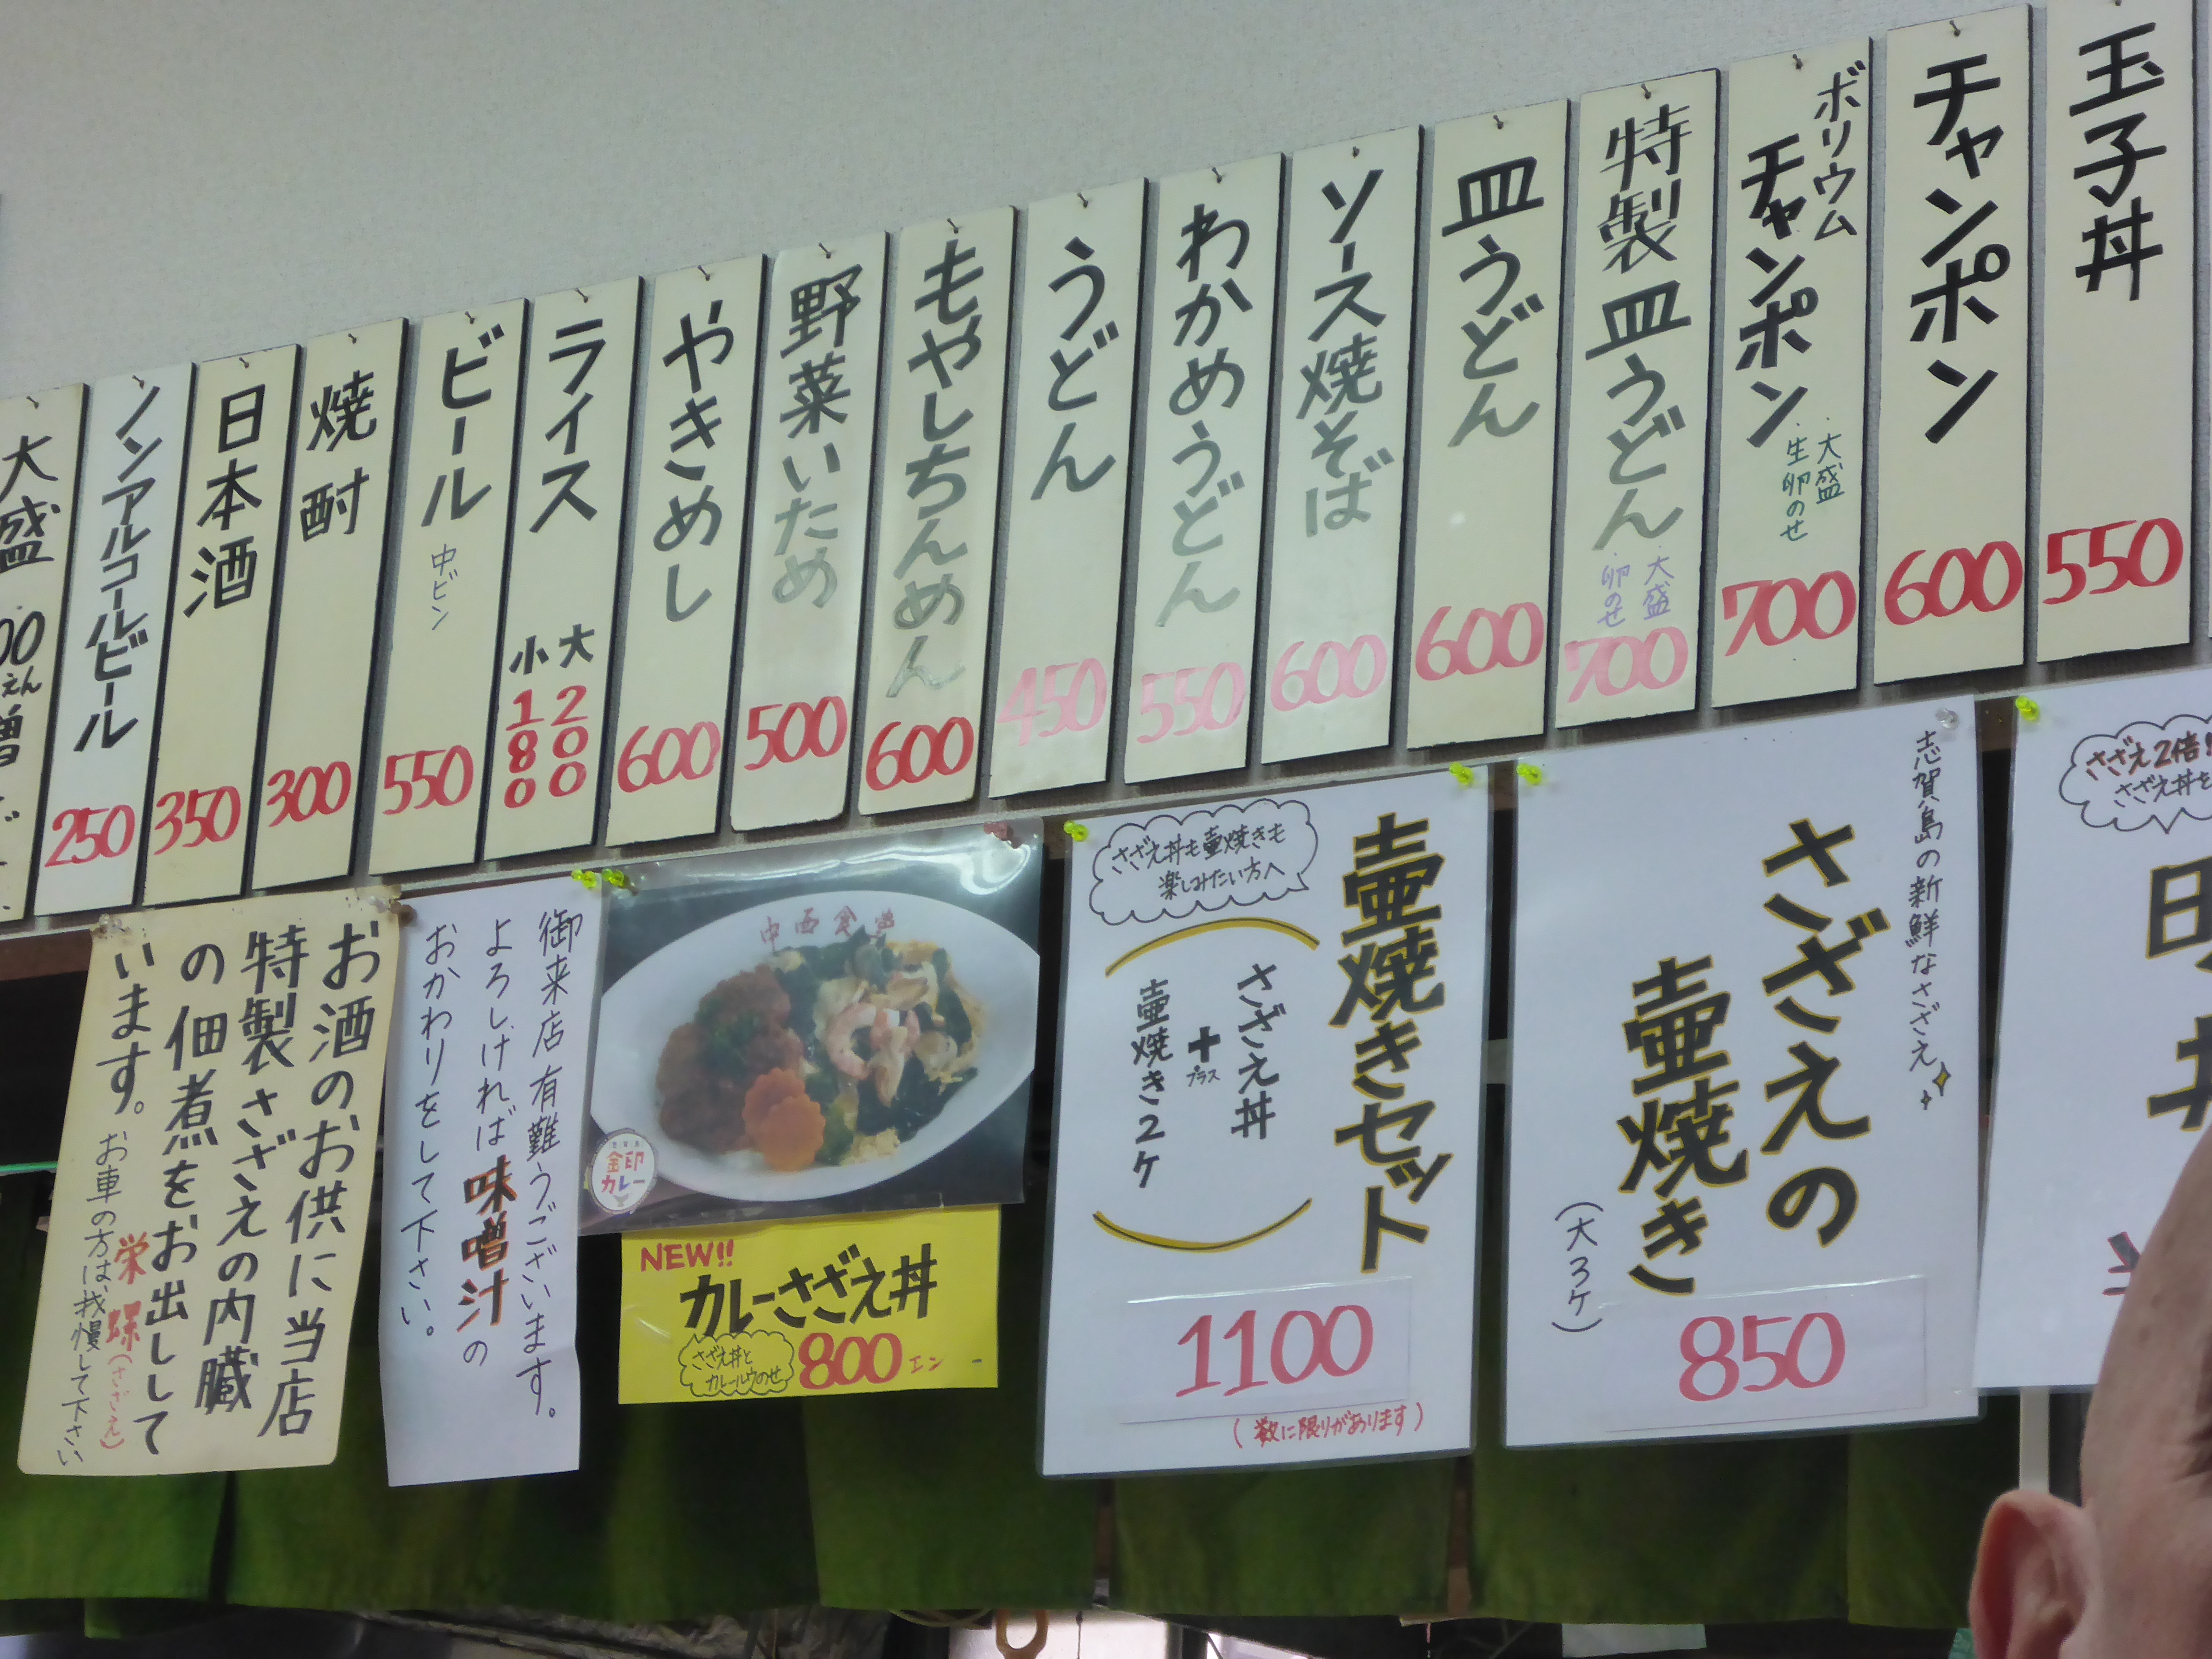 玉子丼
550
チャンポン
600
ボリウム
チャンポン
・大盛
・生卵のせ
700
特製皿うどん
・大盛
・卵のせ
700
皿うどん
600
ソース焼そば
600
わかめうどん
550
うどん
450
もやしちんめん
600
野菜いため
500
やきめし
600
ライス
大200
小180
ビール
中ビン
550
焼酎
300
日本酒
350
ノンアルコールビール
250
大盛
さざえ2倍!
さざえ丼を
志賀島の新鮮なさざえ
さざえの
壷焼き
(大3ケ)
850
壷焼きセット
さざえ丼も壷焼きも
楽しみたい方へ
さざえ丼
+
プラス
壷焼き2ケ
1100
(数に限りがあります)
中西食堂
金印
カレー
NEW!!
カレーさざえ丼
さざえ丼と
カレールウのせ
800エン
御来店有難うございます。
よろしければ味噌汁の
おかわりをして下さい。
お酒のお供に当店
特製さざえの内臓
の佃煮をお出しして
います。
栄螺(さざえ)
お車の方は、我慢して下さい